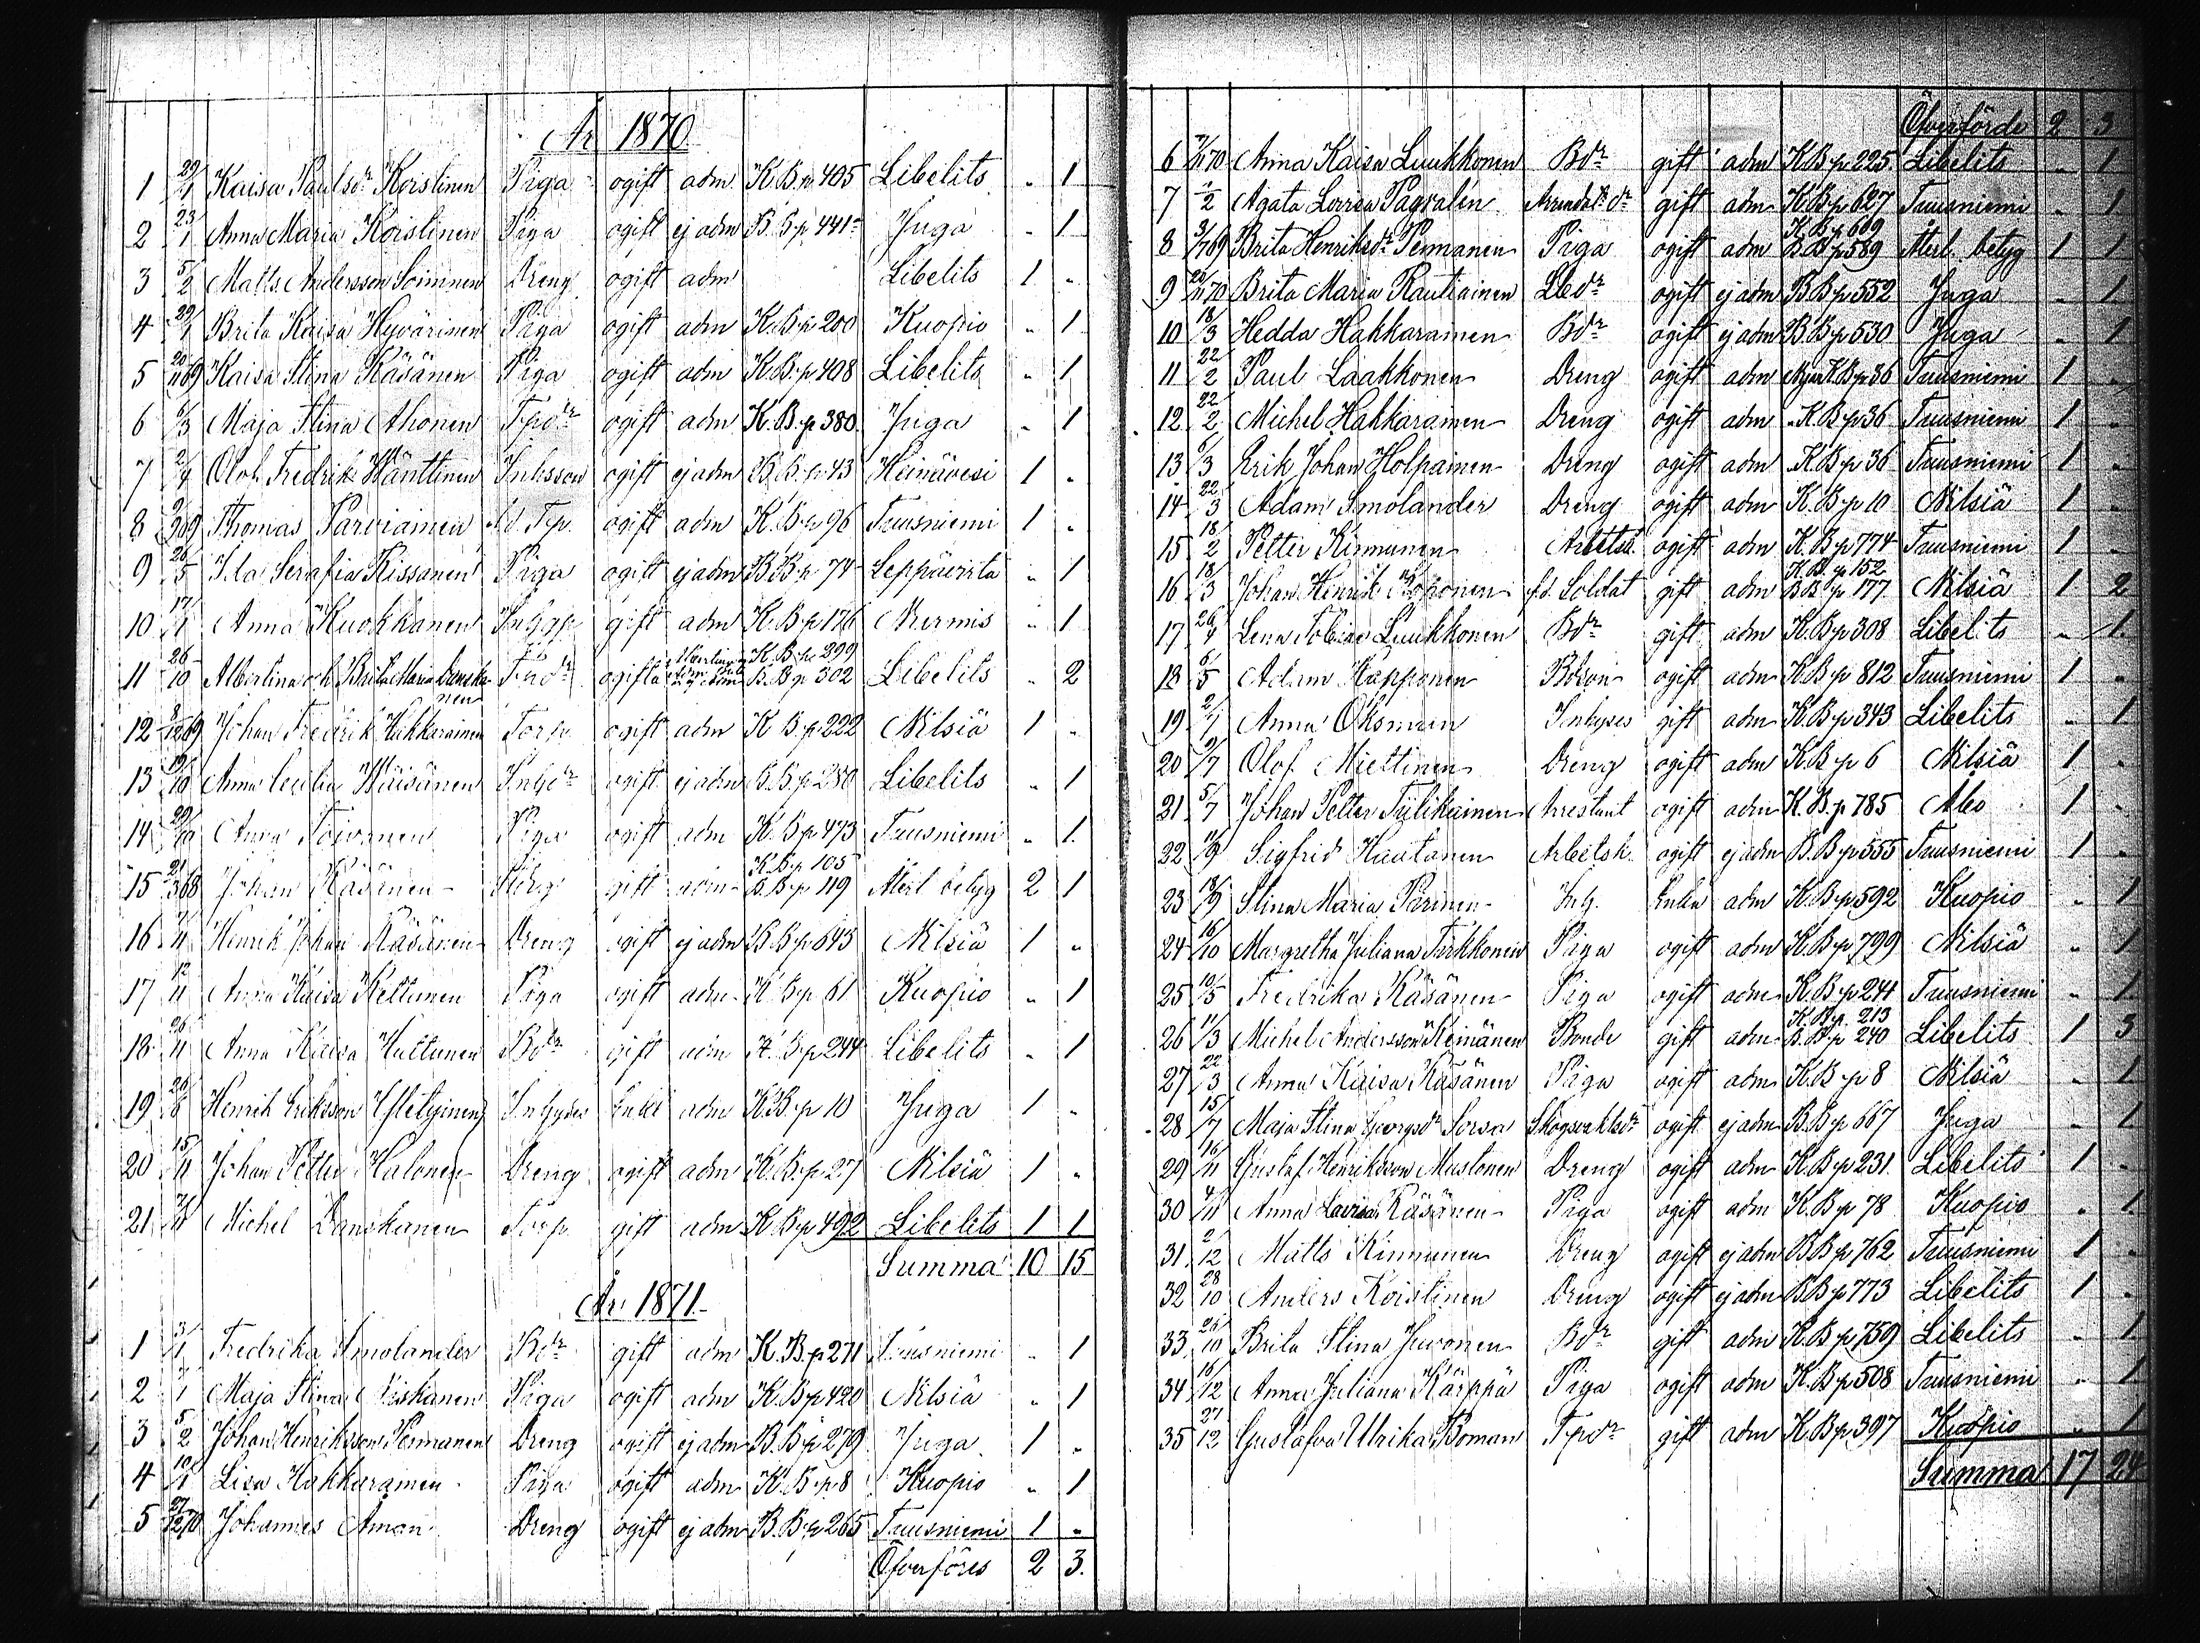 År 1870
1 29/1 Kaisa Paulsdr Koistinen Piga ogift adm K.B.p 405 Libelits „ 1
2 23/1 Anna Maria Koistinen Piga ogift ej adm B.B.p 441 Juga „ 1
3 5/2 Matts Andersson Soininen Dreng ogift adm Libelits 1 „
4 29/1 Brita Kaisa Hyvärinen Piga ogift adm K.B.p 200 Kuopio „ 1
5 20/11 69 Kaisa Stina Räsänen Piga ogift adm K.B.p 408 Libelits „ 1
6 6/3 Maja Stina Ahonen Tpdr ogift adm K.B.p 380 Juga „ 1
7 2/4 Olof Fredrik Hänttinen Inhsson ogift ej adm B.B.p 43 Heinävesi 1 „
8 Thomas Parviainen f.d. Tp. ogift adm K.B.p 96 Tuusniemi 1 „
9 26/5 Ida Serafia Kissanen Piga ogift ej adm B.B.p 74 Leppävirta „ 1
10 17/1 Anna Kuokkanen gift adm K.B.p 176 Nurmis „ 1
11 26/10 Albertina och Brita Maria Danska- ogifta K.B.p 299
nen B.B.p 302 Libelits „ 2
12 8/12 69 Johan Fredrik Hakkarainen Torp. ogift adm K.B.p 222 Nilsiä 1 „
13 19/10 Anna Cecilia Väisänen Inhdr ogift ej adm B.B.p 280 Libelits „ 1
14 29/10 Anna Toivanen Piga ogift adm K.B.p 473 Tuusniemi „ 1
15 21/3 68 Johan Räsänen gift adm K.B.p 105
B.B.p 119 Attest betyg 2 1
16 Henrik Johan Räsänen Dreng ogift ej adm B.B.p 643 Nilsiä 1 „
17 12/11 Anna Kaisa Kettunen Piga ogift adm K.B.p 61 Kuopio „ 1
18 26/11 Anna Kaisa Huttunen Bdr gift adm K.B.p 244 Libelits „ 1
19 26/6 Henrik Eriksson Inhyses Enkl adm K.B.p 10 Juga 1 „
20 15/11 Johan Petter Halonen Dreng ogift adm K.B.p 27 Nilsiä 1 „
21 Michel Danskanen Torp gift adm K.B.p 492 Libelits 1 1
Summa 10 15
År 1871
1 3/1 Fredrika Smolander Bdr gift adm K.B.p 271 Tuusniemi „ 1
2 Maja Stina Niskanen Piga ogift adm K.B.p 420 Nilsiä „ 1
3 5/2 Johan Henriksson Pennanen Dreng ogift ej adm B.B.p 279 Juga 1 „
4 Lisa Hakkarainen Piga ogift adm K.B.p 8 Kuopio „ 1
5 27/12 70 Johannes Åman Dreng ogift ej adm B.B.p 265 Tuusniemi 1 „
Öfverföres 2 3.
Öfverförde 2 3
6 Anna Kaisa Luukkonen Bdr gift adm K.B.p 225 Libelits „ 1
7 1/2 Agata Lovisa Pagvalén gift adm K.B.p 627 Tuusniemi „ 1
8 3/7 69 Brita Henriksdr Pennanen Piga ogift adm K.B.p 609
B.B.p 589 Attest. betyg 1 1
9 Brita Maria Rautiainen ogift ej adm B.B.p 552 Juga „ 1
10 18/3 Hedda Hakkarainen Bdr ogift ej adm B.B.p 530 Juga „ 1
11 22/2 Paul Laakkonen Dreng ogift adm K.B.p 36 Tuusniemi 1 „
12 22/2 Michel Hakkarainen Dreng ogift adm K.B.p 36 Tuusniemi 1 „
13 6/3 Erik Johan Holpainen Dreng ogift adm K.B.p 36 Tuusniemi 1 „
14 22/3 Adam Smolander Dreng ogift adm K.B.p 10 Nilsiä 1 „
15 18/2 Petter Kinnunen ogift adm K.B.p 774 Tuusniemi 1 „
16 18/3 Johan Henrik f.d. Soldat gift adm K.B.p 152
B.B.p 177 Nilsiä 1 2
17 26/4 Lena Tobiae Luukkonen Bdr gift adm K.B.p 308 Libelits „ 1.
18 6/5 Adam Happonen Bdson ogift adm K.B.p 812 Tuusniemi 1 „
19 Anna Oksman Inhyses gift adm K.B.p 343 Libelits „ 1
20 9/7 Olof Miettinen Dreng ogift adm K.B.p 6 Nilsiä 1 „
21 5/7 Johan Petter Tulikainen Arrestant ogift adm K.B.p 785 Åbo 1 „
22 Sigfrid Hautanen Arbetsk. ogift ej adm B.B.p 555 Tuusniemi 1 „
23 Stina Maria Inh. Enka adm K.B.p 592 Kuopio „ 1
24 16/10 Margretha Juliana Turkkonen Piga ogift adm K.B.p 799 Nilsiä „ 1
25 10/5 Fredrika Räsänen Piga ogift adm K.B.p 241 Tuusniemi „ 1
26 11/3 Michel Andersson Keinänen Bonde gift adm K.B.p. 213
B.B.p 240 Libelits 1 3
27 22/3 Anna Kaisa Räsänen Piga ogift adm K.B.p 8 Nilsiä „ 1
28 15/7 Maja Stina Georgsdr Sorsa ogift ej adm B.B.p 667 Juga „ 1
29 16/11 Gustaf Henriksson Mustonen Dreng ogift adm K.B.p 231 Libelits 1 „
30 4/11 Anna Lovisa Räsänen Piga ogift adm K.B.p 78 Kuopio „ 1
31 2/12 Matts Kinnunen Dreng ogift ej adm B.B.p 762 Tuusniemi 1 „
32 28/10 Anders Koistinen Dreng ogift ej adm B.B.p 773 Libelits 1 „
33 26/10 Brita Stina Juvonen Bdr gift adm K.B.p 759 Libelits „ 1
34 16/12 Anna Juliana Kärppä Piga ogift adm K.B.p 508 Tuusniemi „ 1
35 27/12 Gustafva Ulrika Boman Tpdr gift adm K.B.p 397 Kuopio „ 1
Summa 17 24